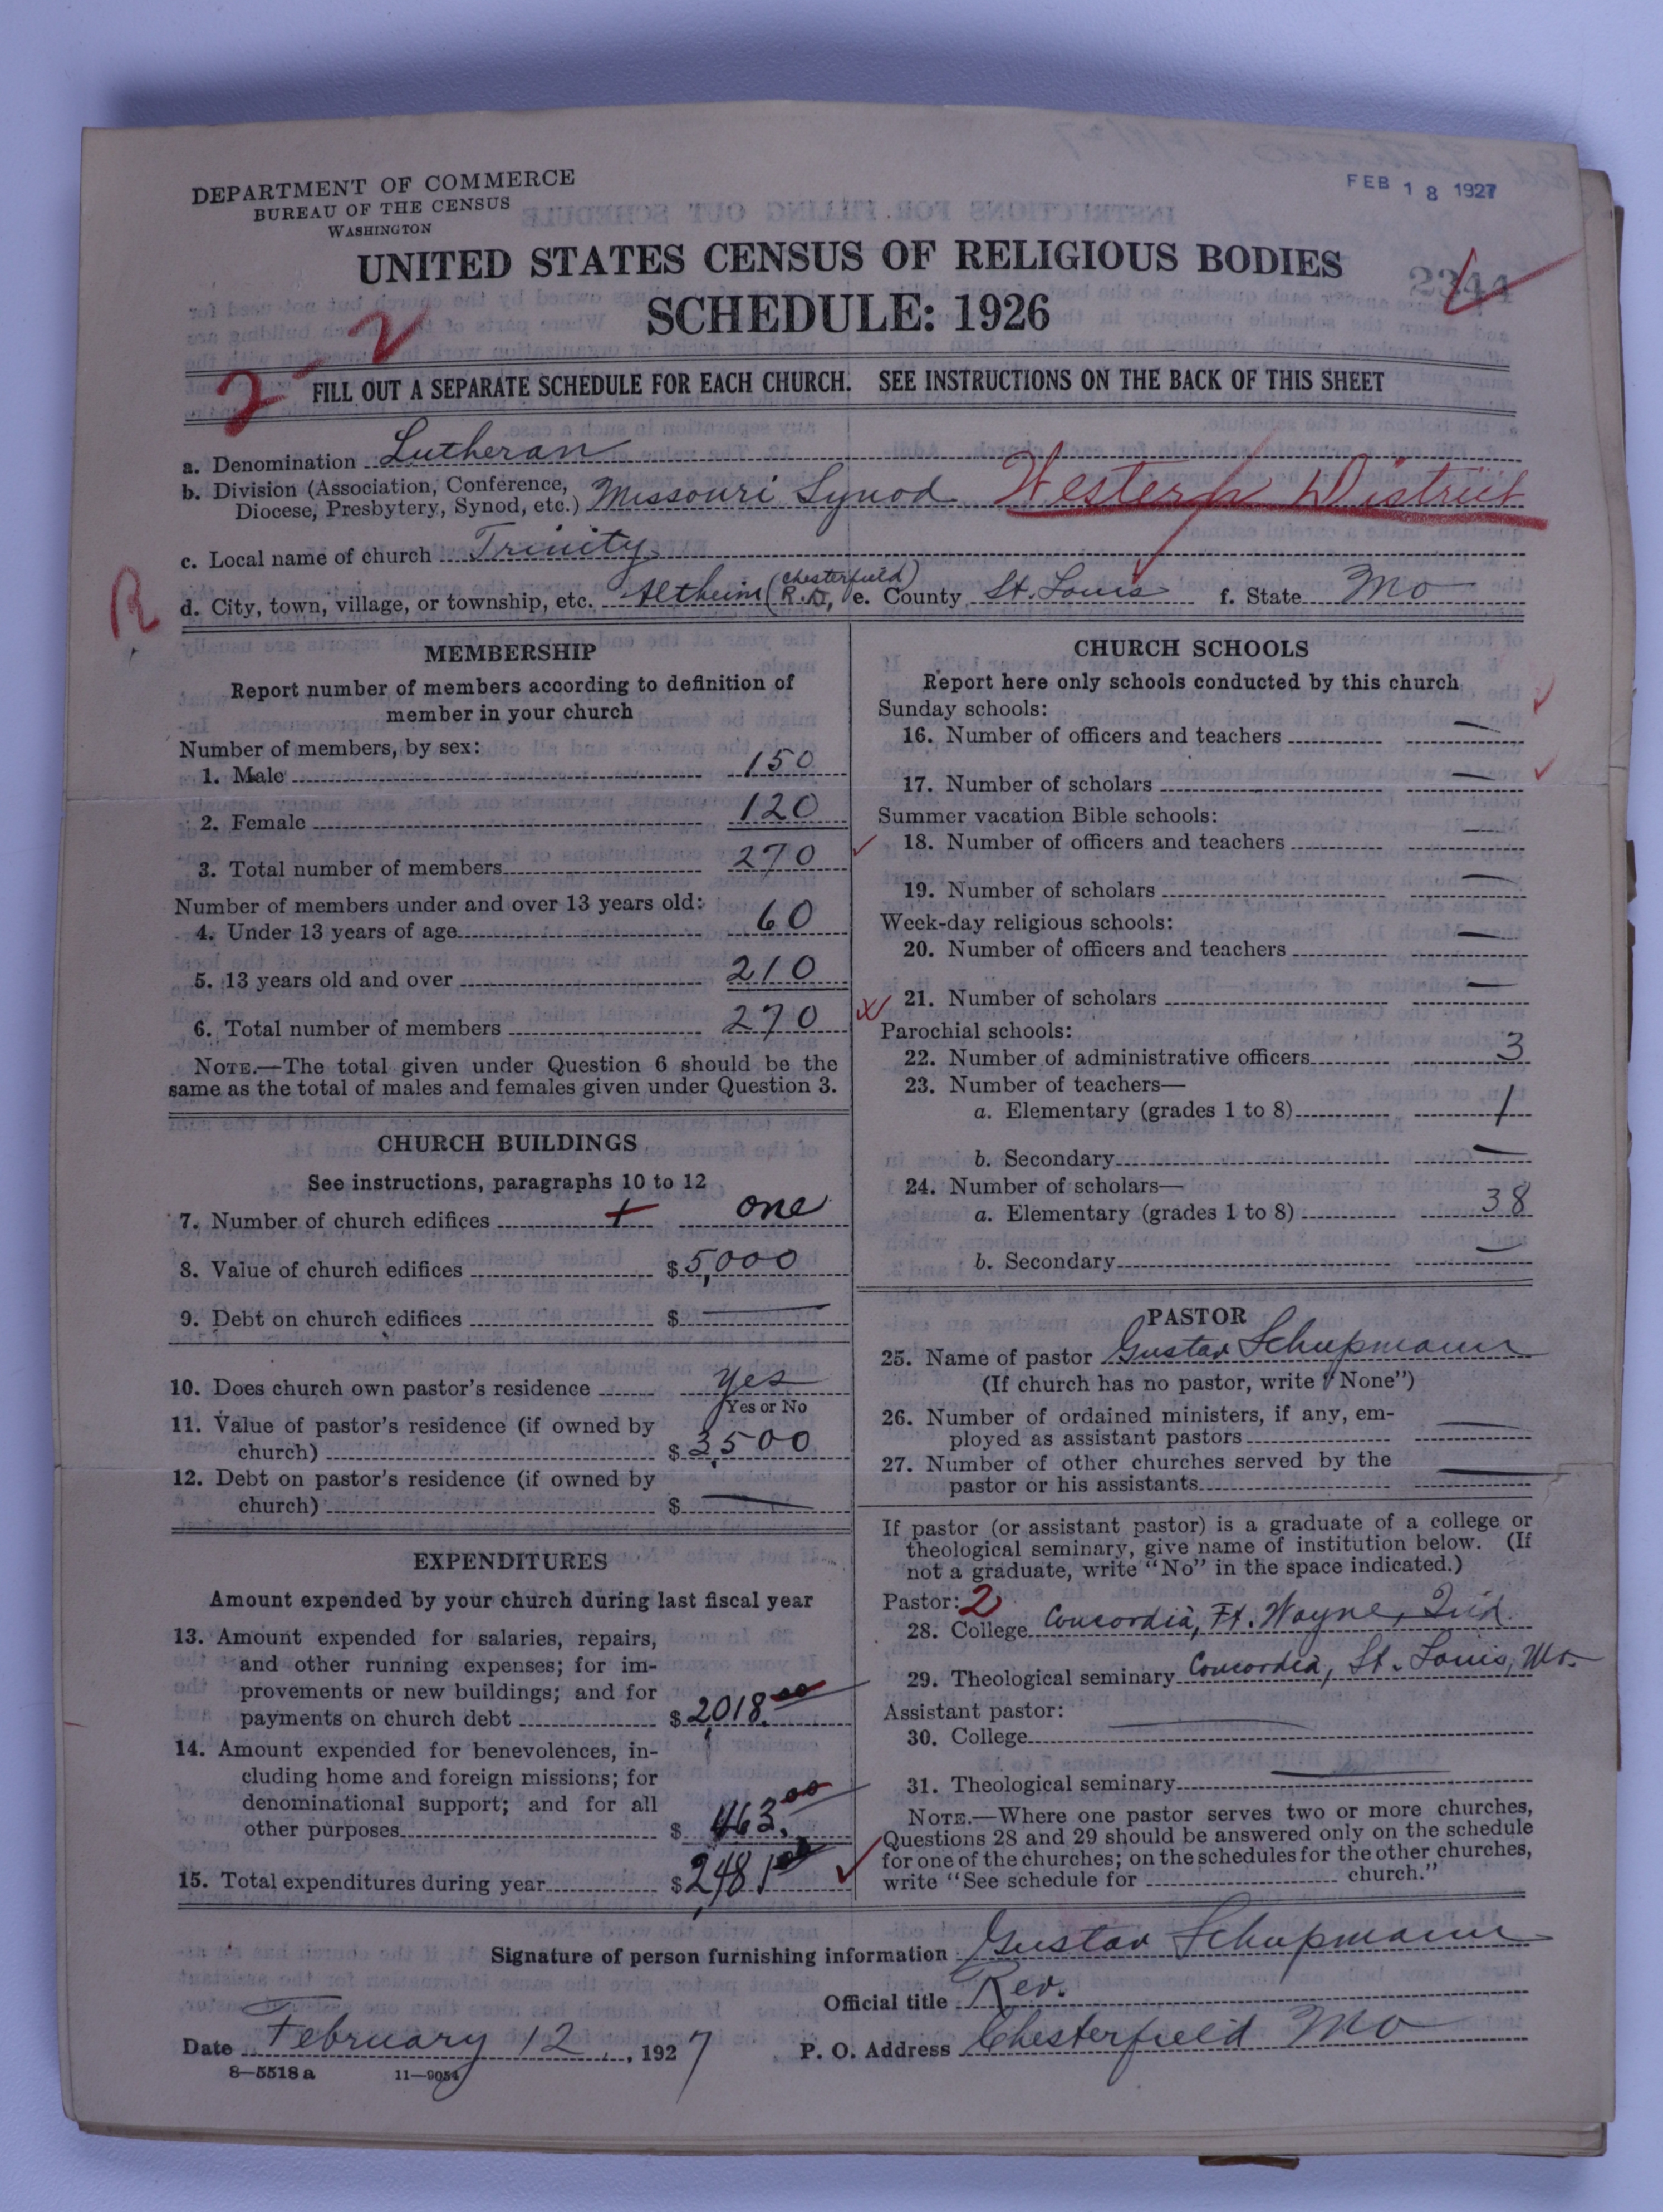 DEPARTMENT OF COMMERCE
BUREAU OF THE CENSUS
WASHINGTON
FEB 18 1927
UNITED STATES CENSUS OF RELIGIOUS BODIES
2344
SCHEDULE: 1926
2-2
FILL OUT A SEPARATE SCHEDULE FOR EACH CHURCH. SEE INSTRUCTIONS ON THE BACK OF THIS SHEET
a. Denomination Lutheran
b. Division (Association, Conference, Diocese, Presbytery, Synod, etc.) Missouri Synod Western District
c. Local name of church Trinity
R
d. City, town, village, or township, etc. Altheim (Chesterfield) R.D., e. County St. Louis f. State Mo
MEMBERSHIP
Report number of members according to definition of
member in your church
Number of members, by sex:
1. Male 150
2. Female 120
3. Total number of members 270
Number of members under and over 13 years old:
4. Under 13 years of age 60
5. 13 years old and over 210
6. Total number of members 270
NOTE.—The total given under Question 6 should be the
same as the total of males and females given under Question 3.
CHURCH BUILDINGS
See instructions, paragraphs 10 to 12
7. Number of church edifices one
8. Value of church edifices $5,000
9. Debt on church edifices $ —
10. Does church own pastor's residence yes
Yes or No
11. Value of pastor's residence (if owned by
church) $3,500
12. Debt on pastor's residence (if owned by
church) $ —
EXPENDITURES
Amount expended by your church during last fiscal year
13. Amount expended for salaries, repairs,
and other running expenses; for im-
provements or new buildings; and for
payments on church debt $2,018.00
14. Amount expended for benevolences, in-
cluding home and foreign missions; for
denominational support; and for all
other purposes $ 463.00
15. Total expenditures during year $2,481.00
CHURCH SCHOOLS
Report here only schools conducted by this church
Sunday schools:
16. Number of officers and teachers —
17. Number of scholars —
Summer vacation Bible schools:
18. Number of officers and teachers —
19. Number of scholars —
Week-day religious schools:
20. Number of officers and teachers —
21. Number of scholars —
Parochial schools:
22. Number of administrative officers 3
23. Number of teachers—
a. Elementary (grades 1 to 8) 1
b. Secondary —
24. Number of scholars—
a. Elementary (grades 1 to 8) 38
b. Secondary —
PASTOR
25. Name of pastor Gustav Schupmann
(If church has no pastor, write "None")
26. Number of ordained ministers, if any, em-
ployed as assistant pastors —
27. Number of other churches served by the
pastor or his assistants —
If pastor (or assistant pastor) is a graduate of a college or
theological seminary, give name of institution below. (If
not a graduate, write "No" in the space indicated.)
Pastor: 2
28. College Concordia, Ft. Wayne, Ind.
29. Theological seminary Concordia, St. Louis, Mo.
Assistant pastor:
30. College —
31. Theological seminary —
NOTE.—Where one pastor serves two or more churches,
Questions 28 and 29 should be answered only on the schedule
for one of the churches; on the schedules for the other churches,
write "See schedule for church."
Signature of person furnishing information Gustav Schupmann
Official title Rev.
Date February 12, 1927 P. O. Address Chesterfield Mo
8—5518 a 11—9054